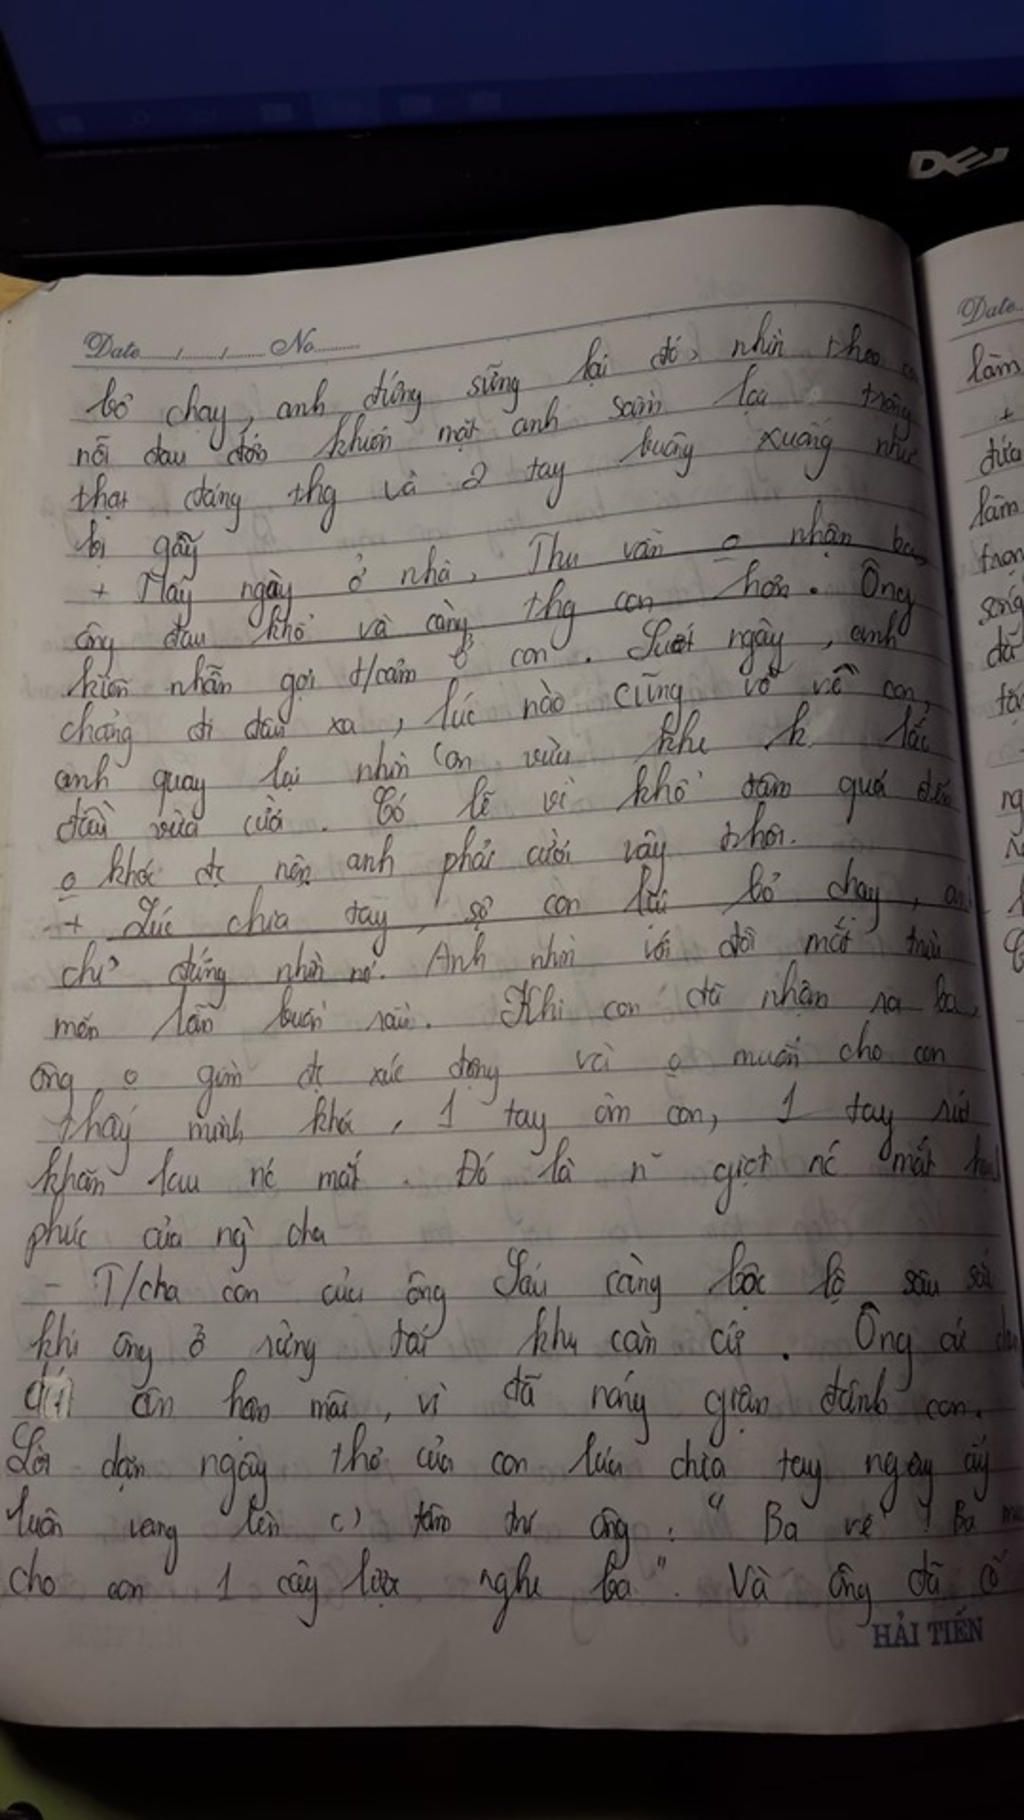 DELL
Date / / No
bỏ chạy, anh đứng sững lại đó, nhìn theo con
nỗi đau đớn khiến mặt anh sầm lại trông
thật đáng thg và 2 tay buông xuống như
bị gãy
+ Mấy ngày ở nhà, Thu vẫn o nhận ba,
ông đau khổ và càng thg con hơn. Ông
kiên nhẫn gợi t/cảm ở con. Suốt ngày, anh
chẳng đi đâu xa, lúc nào cũng vỗ về con,
anh quay lại nhìn con vừa khe k lắc
đầu vừa cười. Có lẽ vì khổ tâm quá đến
o khóc đc nên anh phải cười vậy thôi.
+ Lúc chia tay, sợ con lại bỏ chạy, anh
chỉ đứng nhìn nó. Anh nhìn với đôi mắt trìu
mến lẫn buồn rầu. Khi con đã nhận ra ba,
ông o gìm đc xúc động và o muốn cho con
thấy mình khóc, 1 tay ôm con, 1 tay rút
khăn lau nc mắt. Đó là n~ giọt nc mắt hạnh
phúc của ng` cha
- T/cha con của ông Sáu càng bộc lộ sâu sắc
khi ông ở rừng tại khu căn cứ. Ông cứ
ân hận mãi, vì đã nóng giận đánh con.
Lời dặn ngây thơ của con lúc chia tay ngày ấy
luôn vang lên () tâm trí ông: " Ba về ! Ba mua
cho con 1 cây lược nghe ba". Và ông đã cố
HẢI TIẾN
Date
làm
+
đứa
làm
trọn
sống
đã